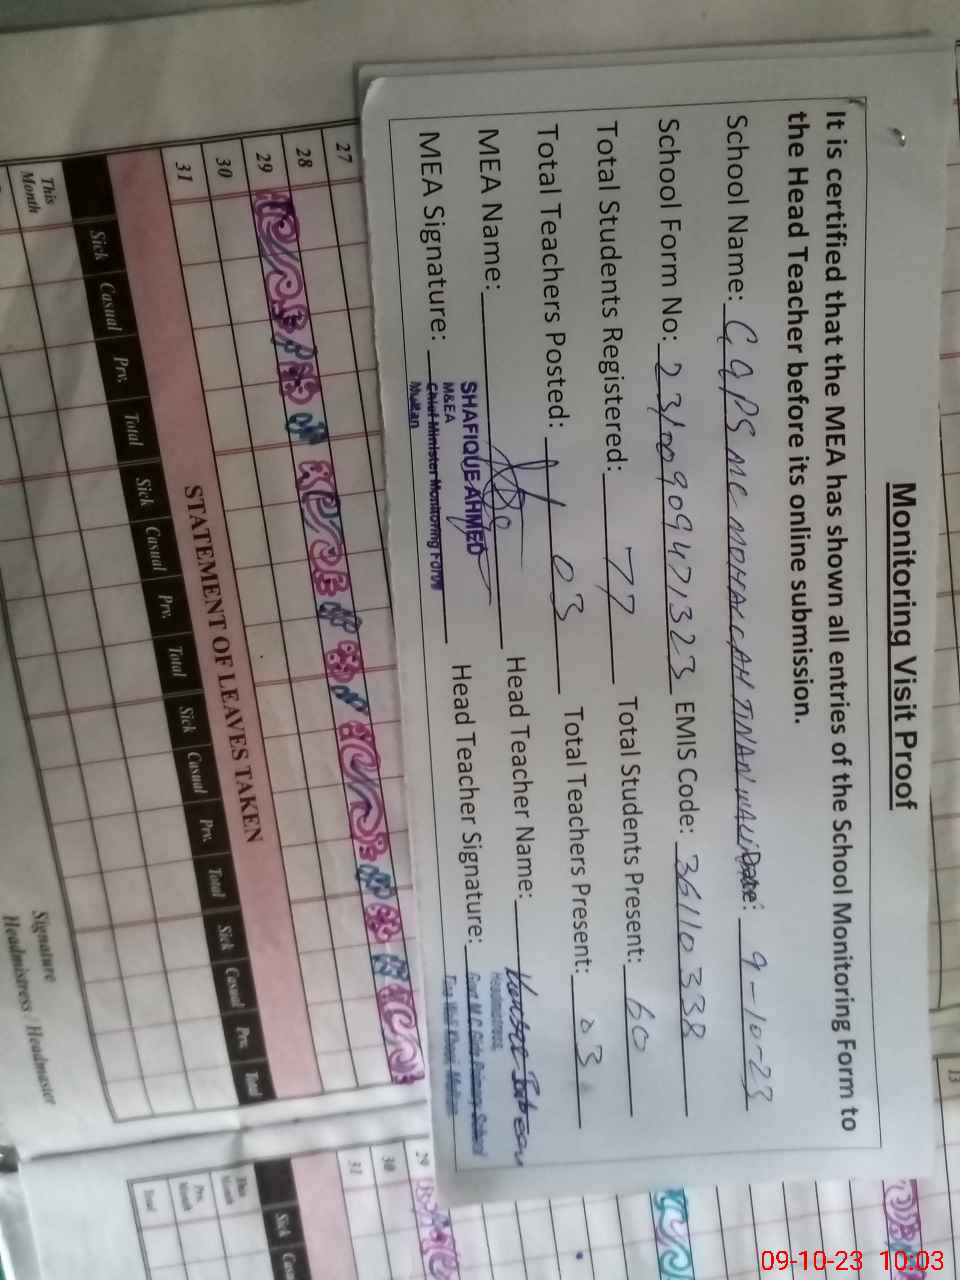 Monitoring Visit Proof
It is certified that the MEA has shown all entries of the School Monitoring Form to
the Head Teacher before its online submission.
School Name: GGPS MC MOHALLAH Date: 9-10-23
School Form No: 23100909471323 EMIS Code: 36110338
Total Students Registered: 77 Total Students Present: 60
Total Teachers Posted: 03 Total Teachers Present: 03
MEA Name: Head Teacher Name:
MEA Signature: Head Teacher Signature:
SHAFIQUE AHMED
M&EA
Chief Minister Monitoring Force
Multan
Headmistress
Govt M.C. Girls Primary School
Multan
27
28
29
30
31
STATEMENT OF LEAVES TAKEN
Sick Casual Prv. Total Sick Casual Prv. Total Sick Casual Prv. Total Sick Casual Prv. Total
This
Month
Signature
Headmistress / Headmaster
13
29
30
31
Sick
This
Month
Prv.
Month
Total
09-10-23 10:03